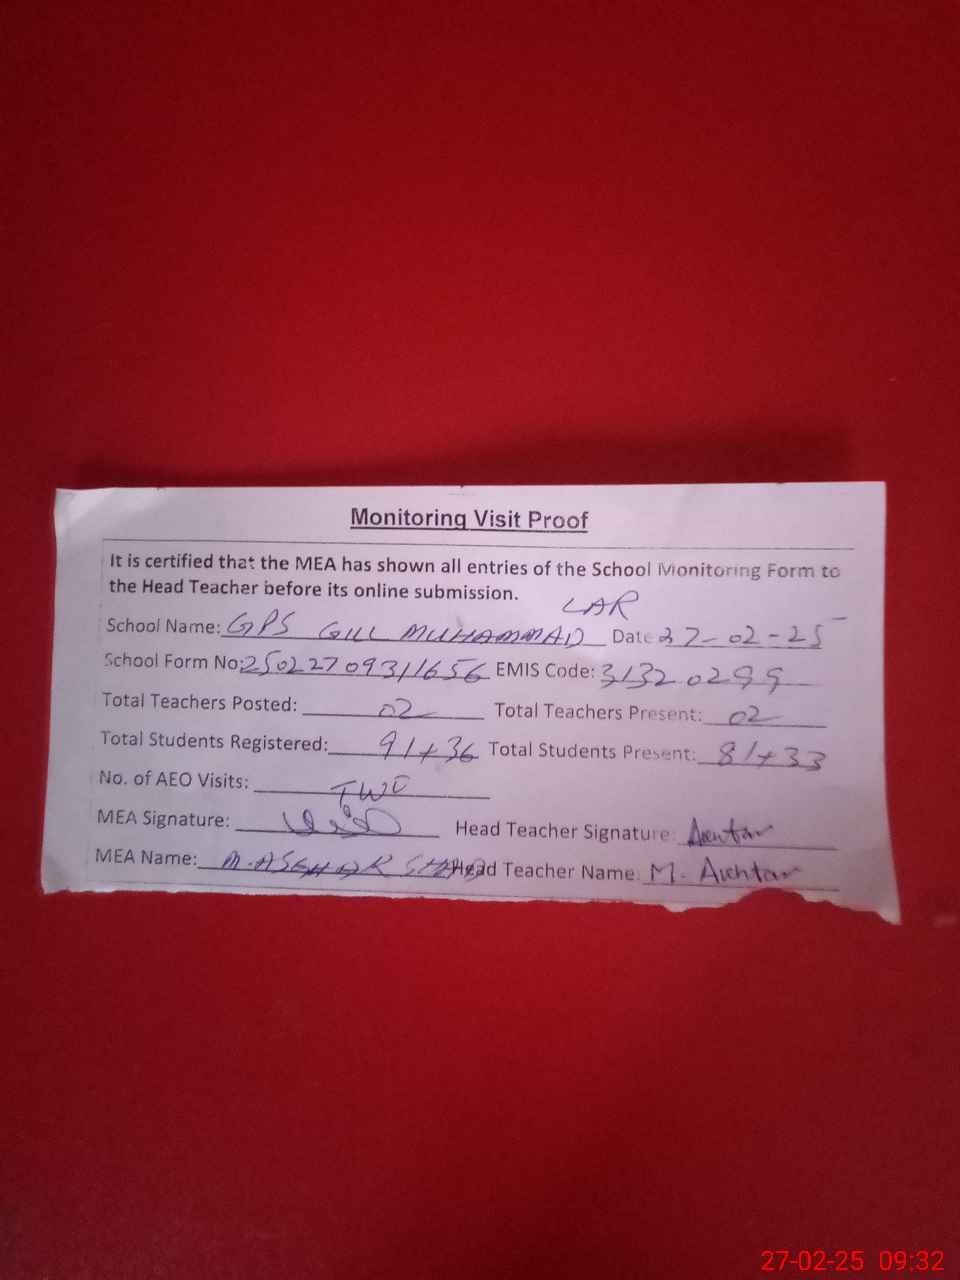 Monitoring Visit Proof
It is certified that the MEA has shown all entries of the School Monitoring Form to
the Head Teacher before its online submission.
LAR
School Name: GPS GILL MUHAMMAD Date 27-02-25
School Form No: 25022709311656 EMIS Code: 31320299
Total Teachers Posted: 02 Total Teachers Present: 02
Total Students Registered: 91+36 Total Students Present: 81+33
No. of AEO Visits: TWO
MEA Signature: Head Teacher Signature: Akhtar
MEA Name: M. ASGHAR Head Teacher Name: M. Akhtar
27-02-25 09:32